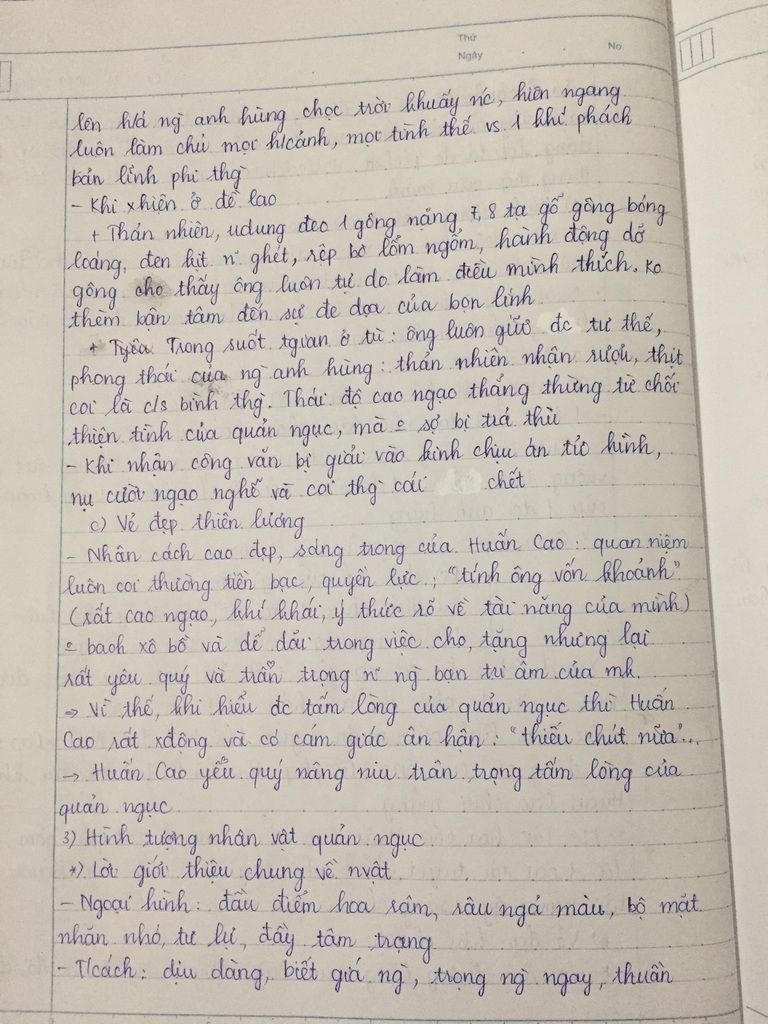 Thứ
Ngày
No.
lên h/ả ng` anh hùng chọc trời khuấy nc, hiên ngang
luôn làm chủ mọi h/cảnh, mọi tình thế vs 1 khí phách
bản lĩnh phi thg`
- Khi xhiện ở đề lao
+ Thản nhiên, udung đeo 1 gông nặng 7, 8 tạ gỗ gông bóng
loáng, đen kịt n~ ghét, rệp bò lổm ngổm, hành động dỗ
gông cho thấy ông luôn tự do làm điều mình thích. Ko
thèm bận tâm đến sự đe dọa của bọn lính
+ Trong suốt tgian ở tù: ông luôn giữ đc tư thế,
phong thái của ng` anh hùng: thản nhiên nhận rượu, thịt
coi là c/s bình thg`. Thái độ cao ngạo thẳng thừng từ chối
thiện tình của quản ngục, mà o sợ bị trả thù
- Khi nhận công văn bị giải vào kinh chịu án tử hình,
nụ cười ngạo nghễ và coi thg` cái chết
c) Vẻ đẹp thiên lương
- Nhân cách cao đẹp, sáng trong của Huấn Cao: quan niệm
luôn coi thường tiền bạc, quyền lực; "tính ông vốn khoảnh"
(rất cao ngạo, khí khái, ý thức rõ về tài năng của mình)
o baoh xô bồ và dể dãi trong việc cho, tặng nhưng lại
rất yêu quý và trân trọng n~ ng` bạn tri âm của mk.
→ Vì thế, khi hiểu đc tấm lòng của quản ngục thì Huấn
Cao rất xđộng và có cảm giác ân hận: "thiếu chút nữa"...
→ Huấn Cao yêu quý nâng niu trân trọng tấm lòng của
quản ngục
3) Hình tượng nhân vật quản ngục
*) Lời giới thiệu chung về nvật
- Ngoại hình: đầu điểm hoa râm, râu ngả màu, bộ mặt
nhăn nhó, tư lự, đầy tâm trạng
- T/cách: dịu dàng, biết giá ng`, trọng ng` ngay, thuần